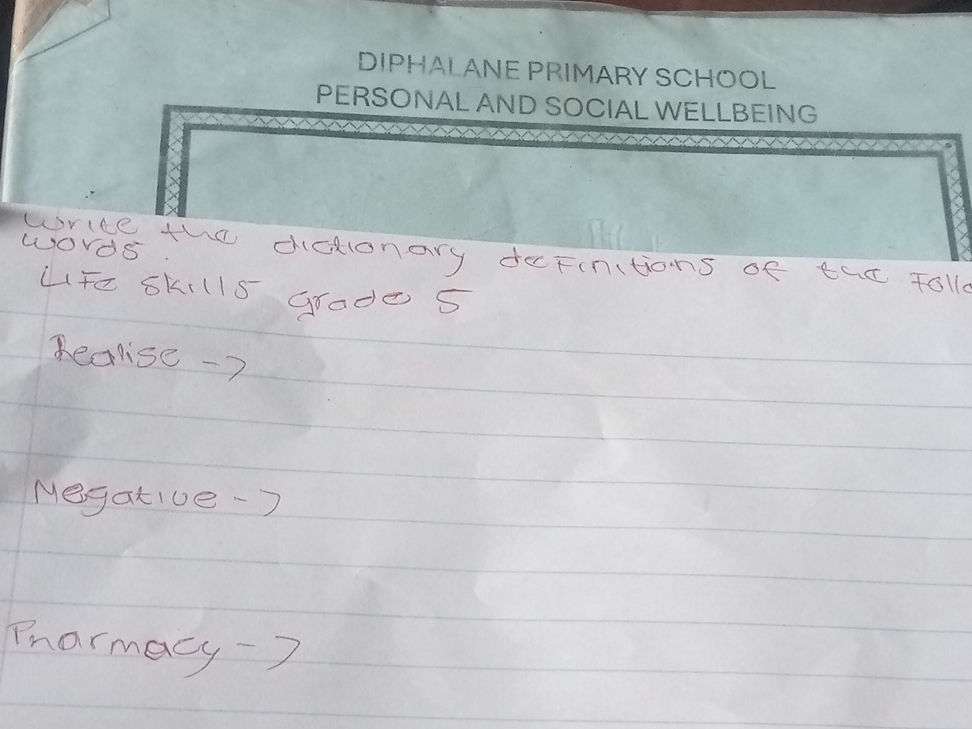 DIPHALANE PRIMARY SCHOOL
PERSONAL AND SOCIAL WELLBEING
Write the dictionary definitions of the Follo
words.
Life skills grade 5
Realise ->
Negative ->
Pharmacy ->